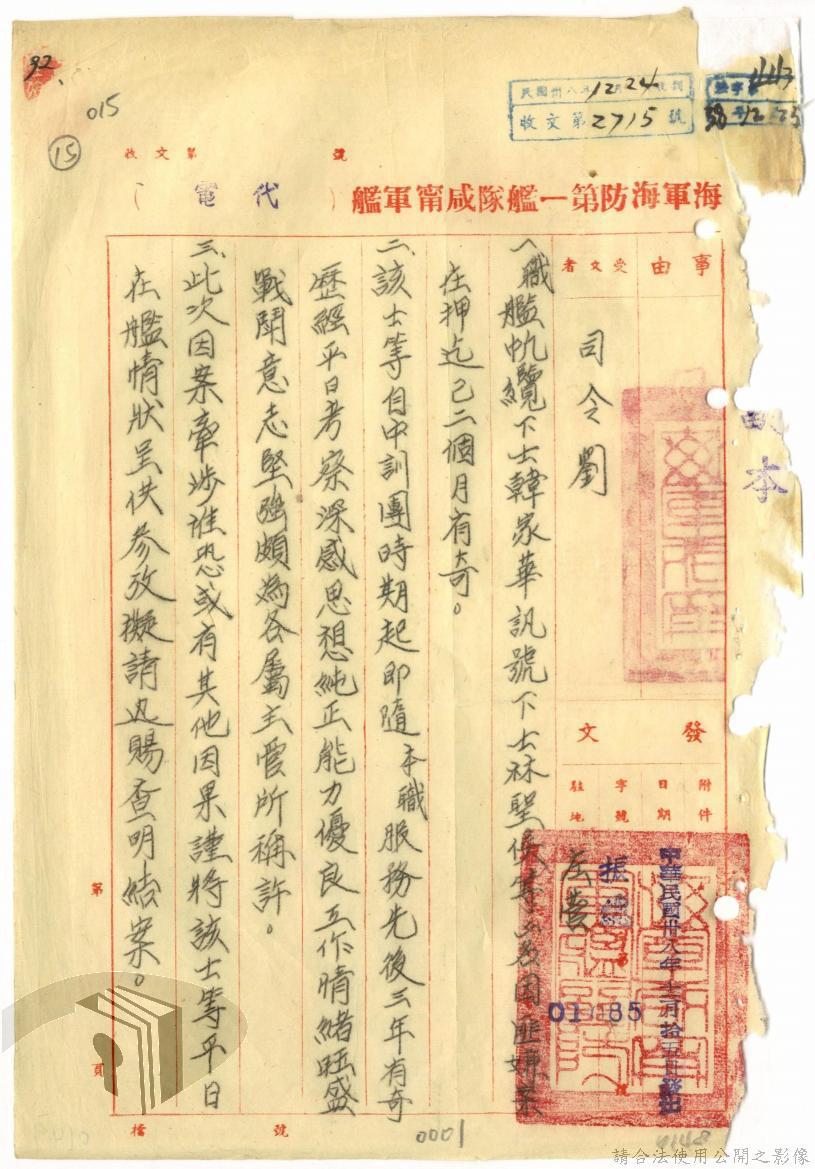 92
015
15
民國卅八年12月24收到
收文第2715號
38 12 25
收文第 號
海軍海防第一艦隊咸甯軍艦（代電）
事由
受文者
司令劉
發文
附件
日期
字號
駐地
中華民國卅八年
振
01
85
左營
本
一、職艦帆纜下士韓家華訊號下士林聖侯等
因匪嫌案
在押迄已二個月有奇。
二、該士等自中訓團時期起即隨本職服務先後三年有奇
歷經平日考察深感思想純正能力優良工作情緒旺盛
戰鬪意志堅強頗為各屬主管所稱許。
三、此次因案牽涉誰恐或有其他因果謹將該士等平日
在艦情狀呈供參攷擬請迅賜查明結案。
第 頁
檔 號
0001
0148
請合法使用公開之影像